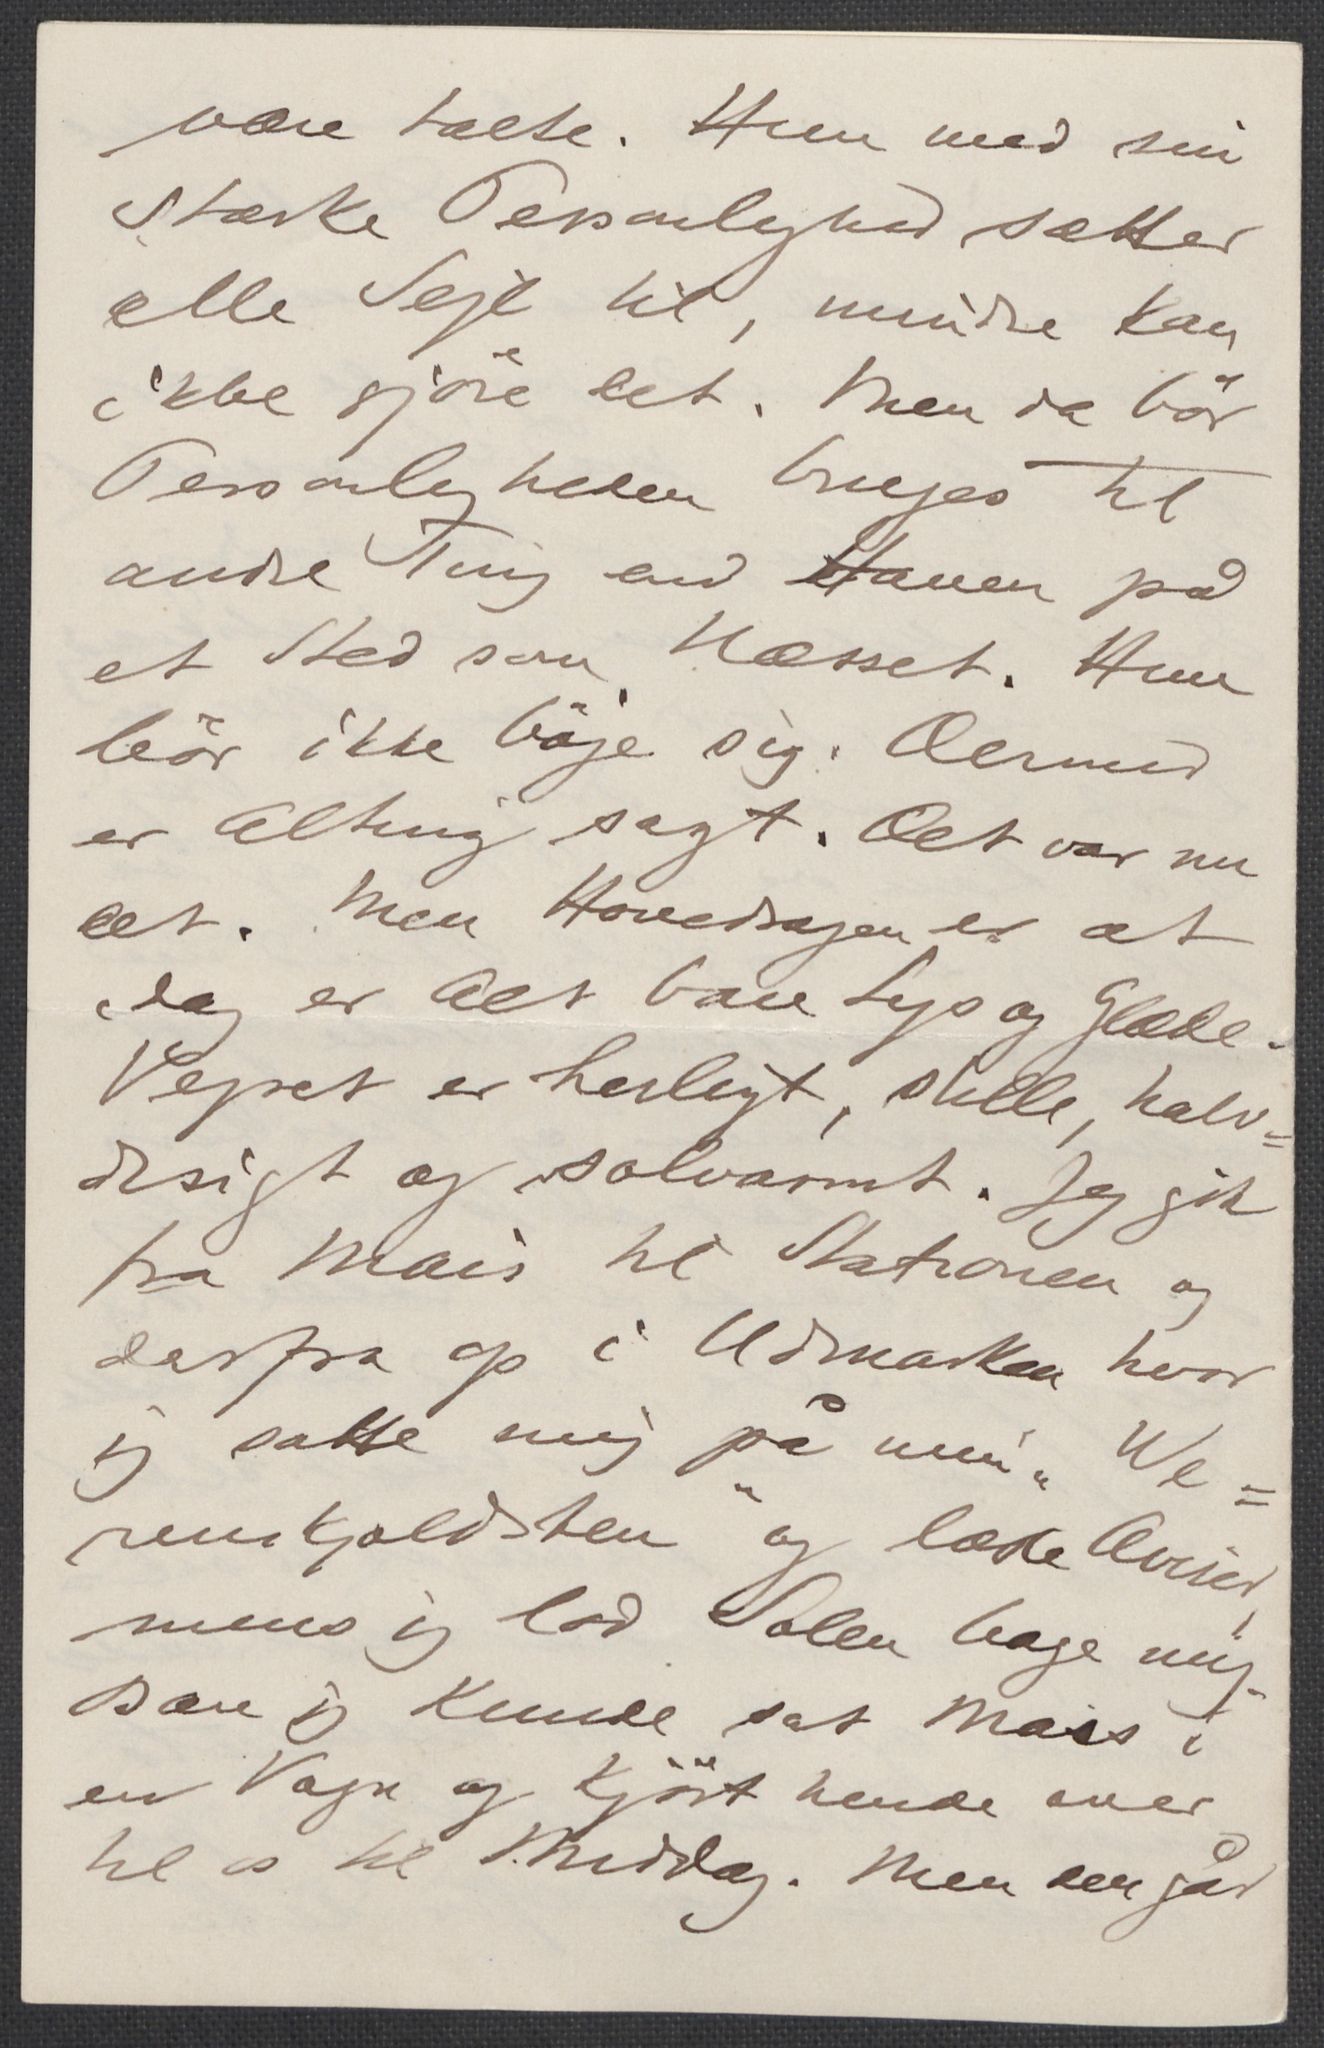 være talte. Hun med sin
stærke Personlighed sætter
alle Sejl til, mindre kan
ikke gjöre det. Men da bör
Personligheden bruges til
andre Ting end Haven på
et Sted som Næsset. Hun
bör ikke böje sig. Dermed
er Alting sagt. Det var nu
det. Men Hovedsagen er at
idag er Alt bare Lys og Glæde.
Vejret er herligt, stille, halv=
disigt og solvarmt. Jeg gik
fra Mais til Stationen og
derfra op i Udmarken hvor
jg satte mig på min „We=
renskjoldsten“ og læste Aviser,
mens jg lod Solen bage mig.
Bare jg kunde sat Mais i
en Vogn og kjört hende over
til os til Middag. Men den går